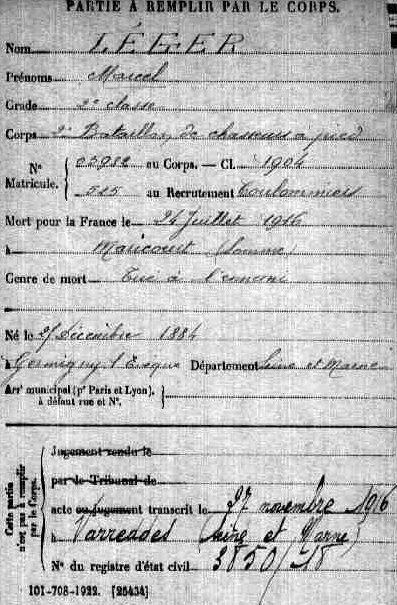 PARTIE À REMPLIR PAR LE CORPS.
Nom LÉGER
Prénoms Marcel
Grade 2e classe
Corps 2e Bataillon de chasseurs à pied
Nº Matricule. { 05982 au Corps. — Cl. 1904
525 au Recrutement Coulommiers
Mort pour la France le 24 Juillet 1916
à Maricourt (Somme)
Genre de mort Tué à l'ennemi
Né le Décembre 1884
à Germigny l'Evêque Département Seine et Marne
Arrt municipal (pr Paris et Lyon), à défaut rue et Nº. {
Cette partie n'est pas à remplir par le Corps.
Jugement rendu le
par le Tribunal de
acte ou jugement transcrit le 27 novembre 1916
à Varreddes (Seine et Marne)
Nº du registre d'état civil 3850/18
101-708-1922. [26434]